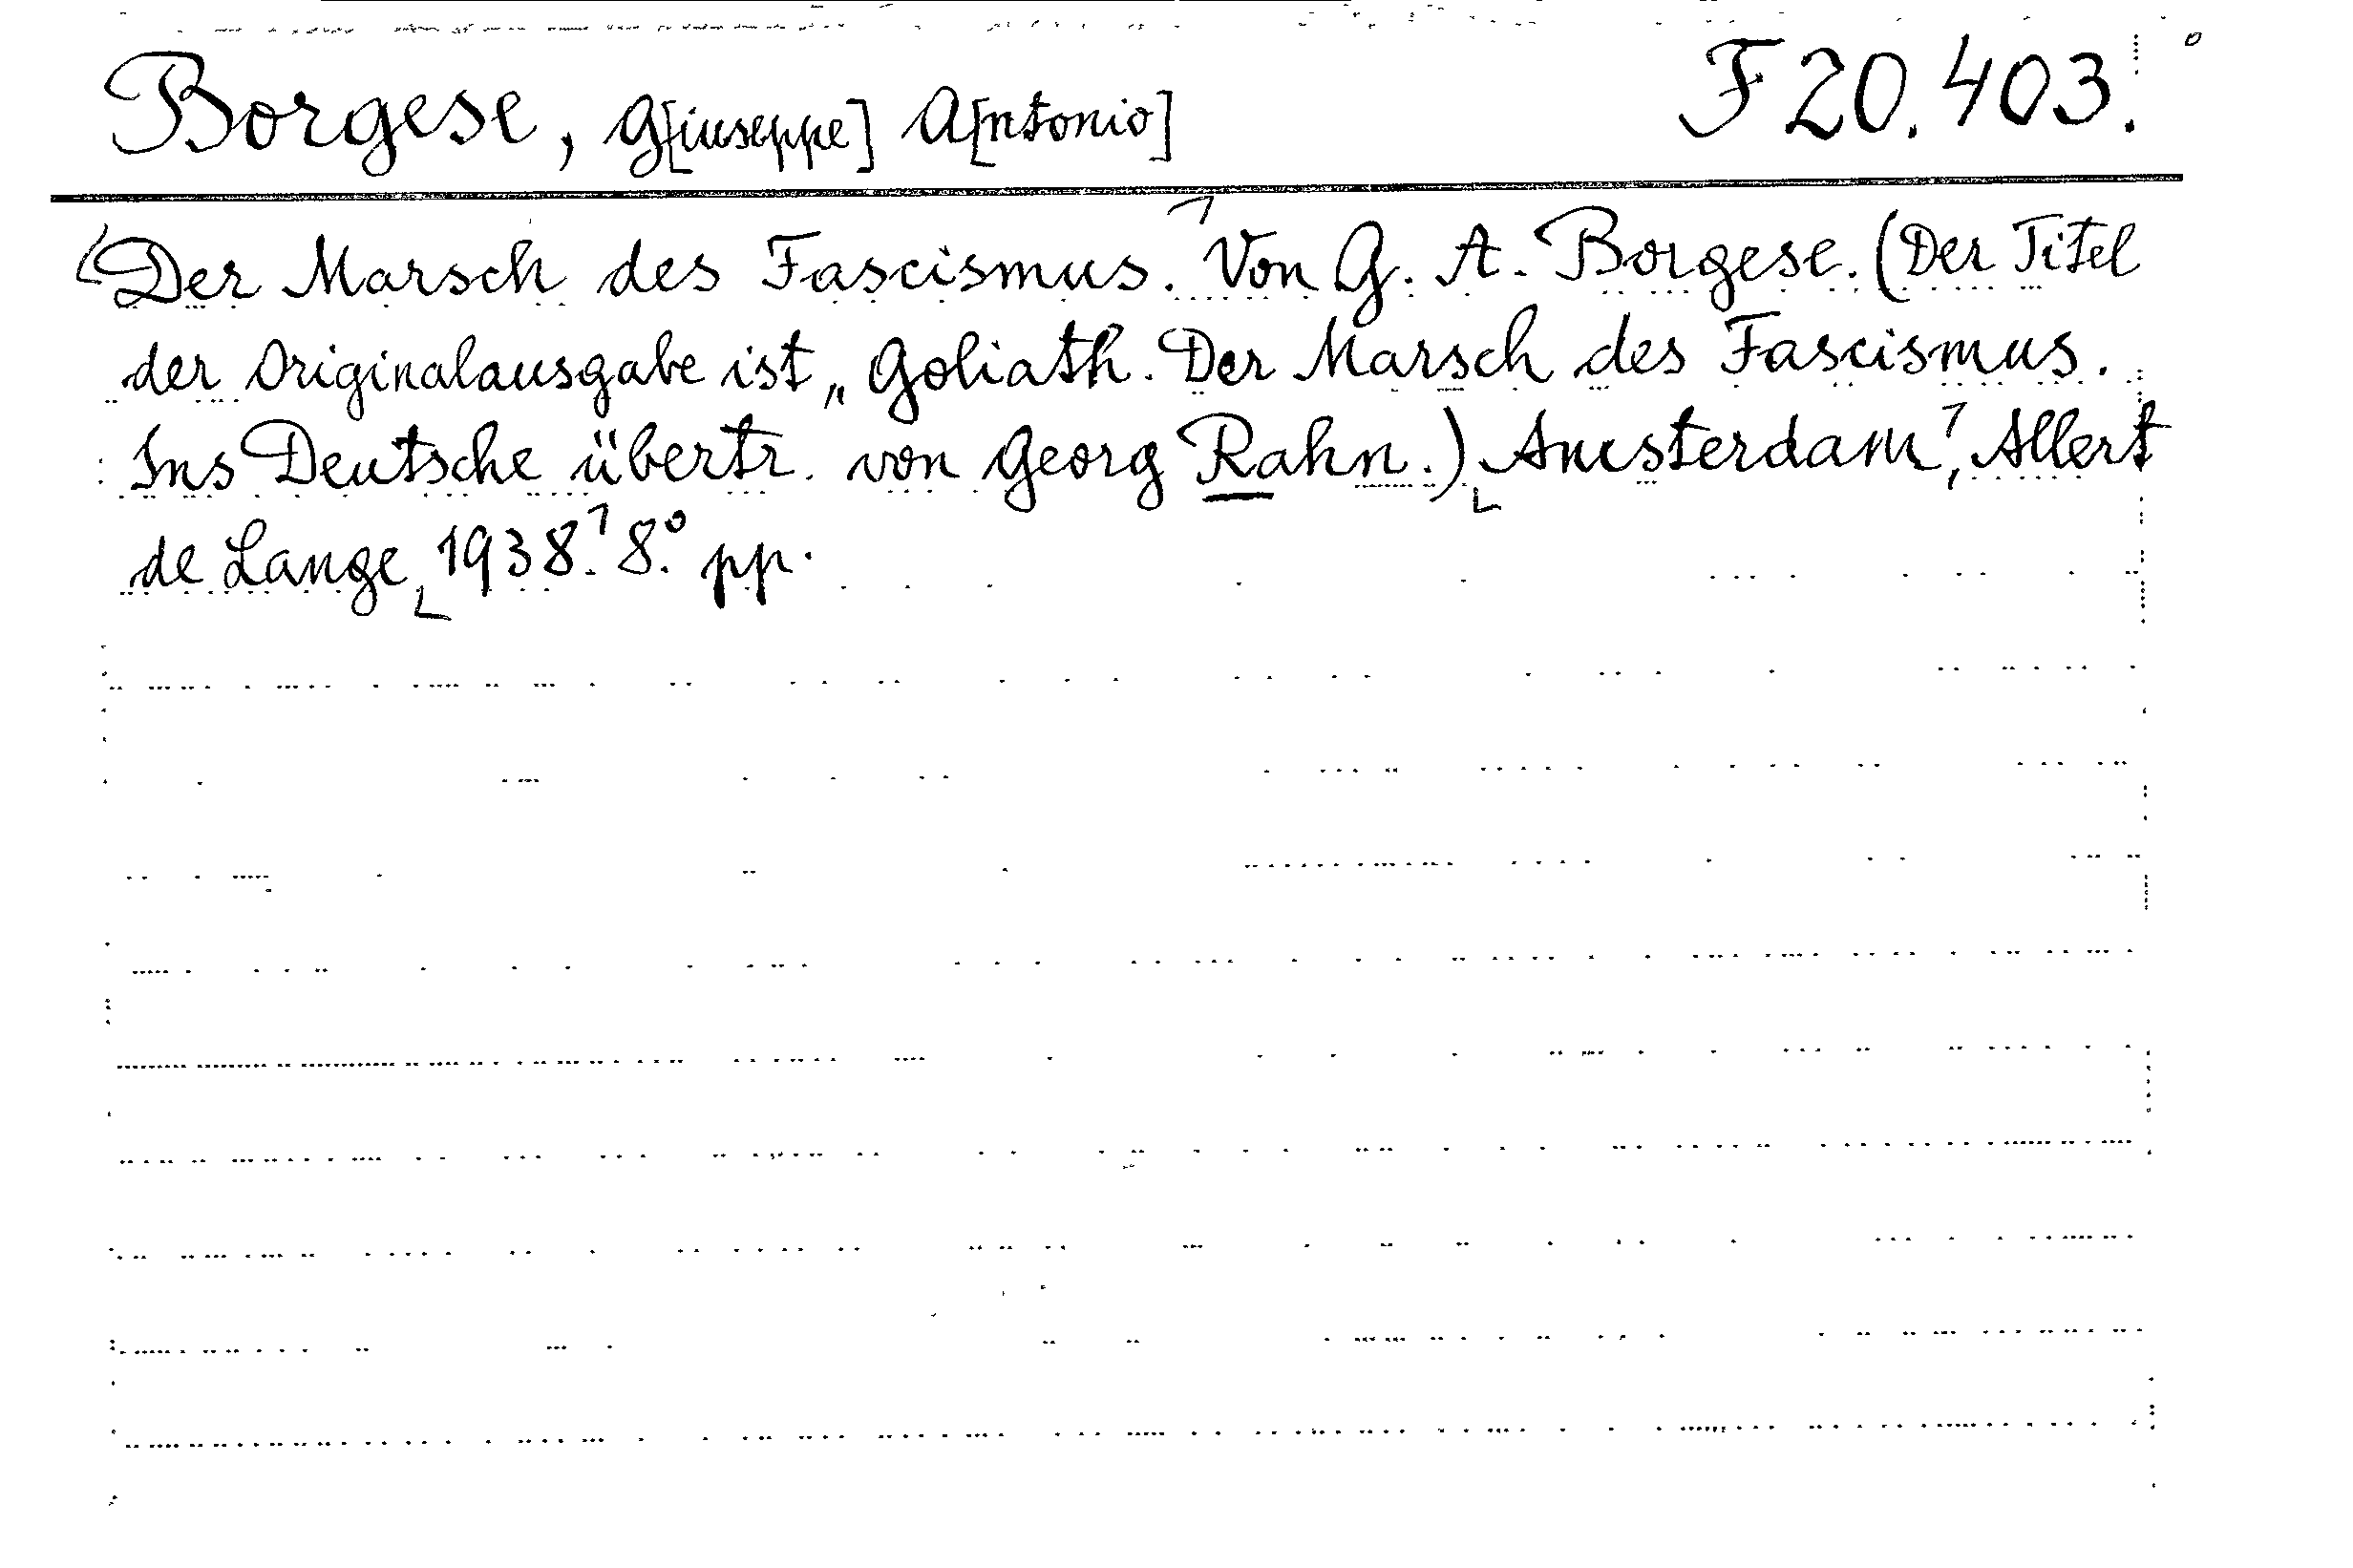 Borgese, G[iuseppe] A[ntonio] F 20.403.
Der Marsch des Fascismus. Von G. A. Borgese. (Der Titel
der Originalausgabe ist „Goliath. Der Marsch des Fascismus.
Ins Deutsche übertr. von Georg Rahn.) Amsterdam, Allert
de Lange 1938. 8.° pp.